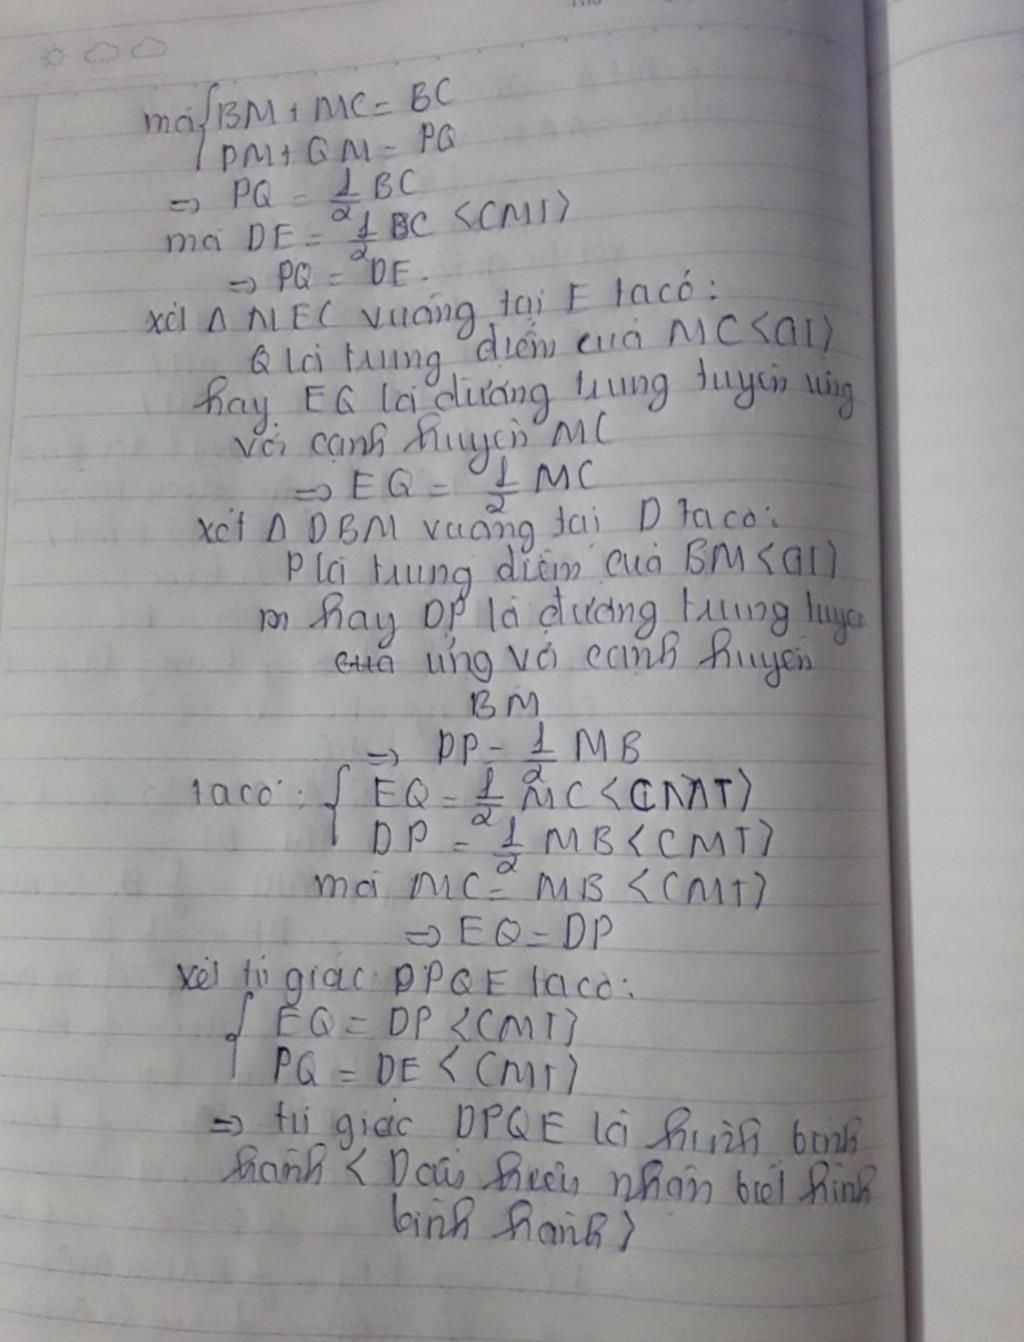 mà { BM + MC = BC
PM + QM = PQ
=> PQ = 1/2 BC
mà DE = 1/2 BC <CMT>
=> PQ = DE.
xét Δ MEC vuông tại E ta có:
Q là trung điểm của MC <GT>
hay EQ là đường trung tuyến ứng
với cạnh huyền MC
=> EQ = 1/2 MC
xét Δ DBM vuông tại D ta có:
P là trung điểm của BM <GT>
hay DP là đường trung tuyến
của ứng với cạnh huyền
BM
=> DP = 1/2 MB
ta có: { EQ = 1/2 MC <CMT>
DP = 1/2 MB <CMT>
mà MC = MB <CMT>
=> EQ = DP
xét tứ giác DPQE ta có:
{ EQ = DP <CMT>
PQ = DE <CMT>
=> tứ giác DPQE là hình bình
hành < Dấu hiệu nhận biết hình
bình hành >